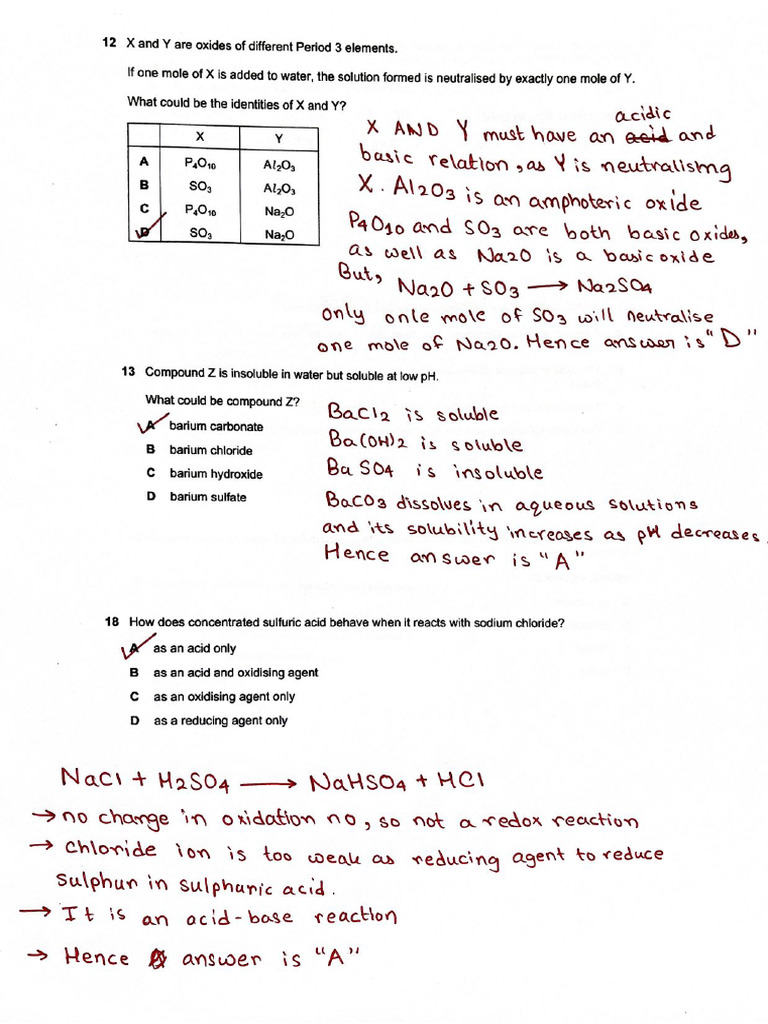 12 X and Y are oxides of different Period 3 elements.
If one mole of X is added to water, the solution formed is neutralised by exactly one mole of Y.
What could be the identities of X and Y?
X Y
A P4O10 Al2O3
B SO3 Al2O3
C P4O10 Na2O
D SO3 Na2O
acidic
X AND Y must have an acid and
basic relation, as Y is neutralising
X. Al2O3 is an amphoteric oxide
P4O10 and SO3 are both basic oxides,
as well as Na2O is a basic oxide
But,
Na2O + SO3 → Na2SO4
only onle mole of SO3 will neutralise
one mole of Na2O. Hence answer is "D"
13 Compound Z is insoluble in water but soluble at low pH.
What could be compound Z?
A barium carbonate
B barium chloride
C barium hydroxide
D barium sulfate
BaCl2 is soluble
Ba(OH)2 is soluble
BaSO4 is insoluble
BaCO3 dissolves in aqueous solutions
and its solubility increases as pH decreases.
Hence answer is "A"
18 How does concentrated sulfuric acid behave when it reacts with sodium chloride?
A as an acid only
B as an acid and oxidising agent
C as an oxidising agent only
D as a reducing agent only
NaCl + H2SO4 → NaHSO4 + HCl
→ no change in oxidation no, so not a redox reaction
→ chloride ion is too weak as reducing agent to reduce
sulphur in sulphuric acid.
→ It is an acid-base reaction
→ Hence answer is "A"